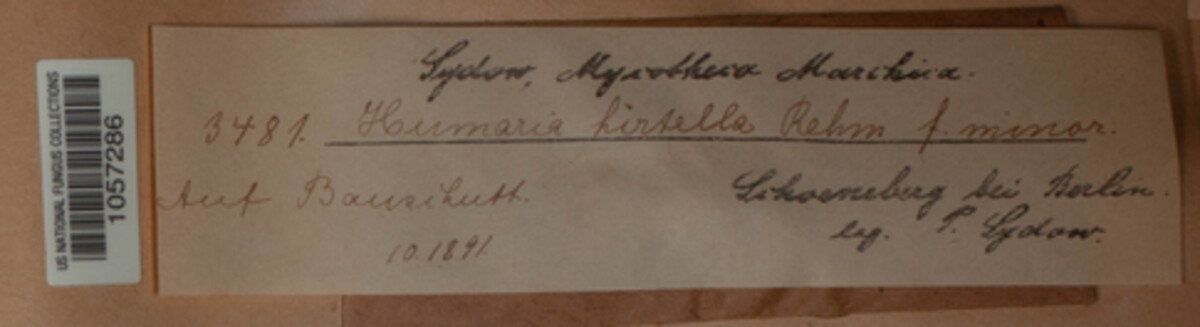 US NATIONAL FUNGUS COLLECTIONS
1057286
Sydow, Mycotheca Marchica.
3481. Humaria hirtella Rehm f. minor.
Auf Bauschutt.
Schoeneberg bei Berlin.
10.1891.
leg. P. Sydow.